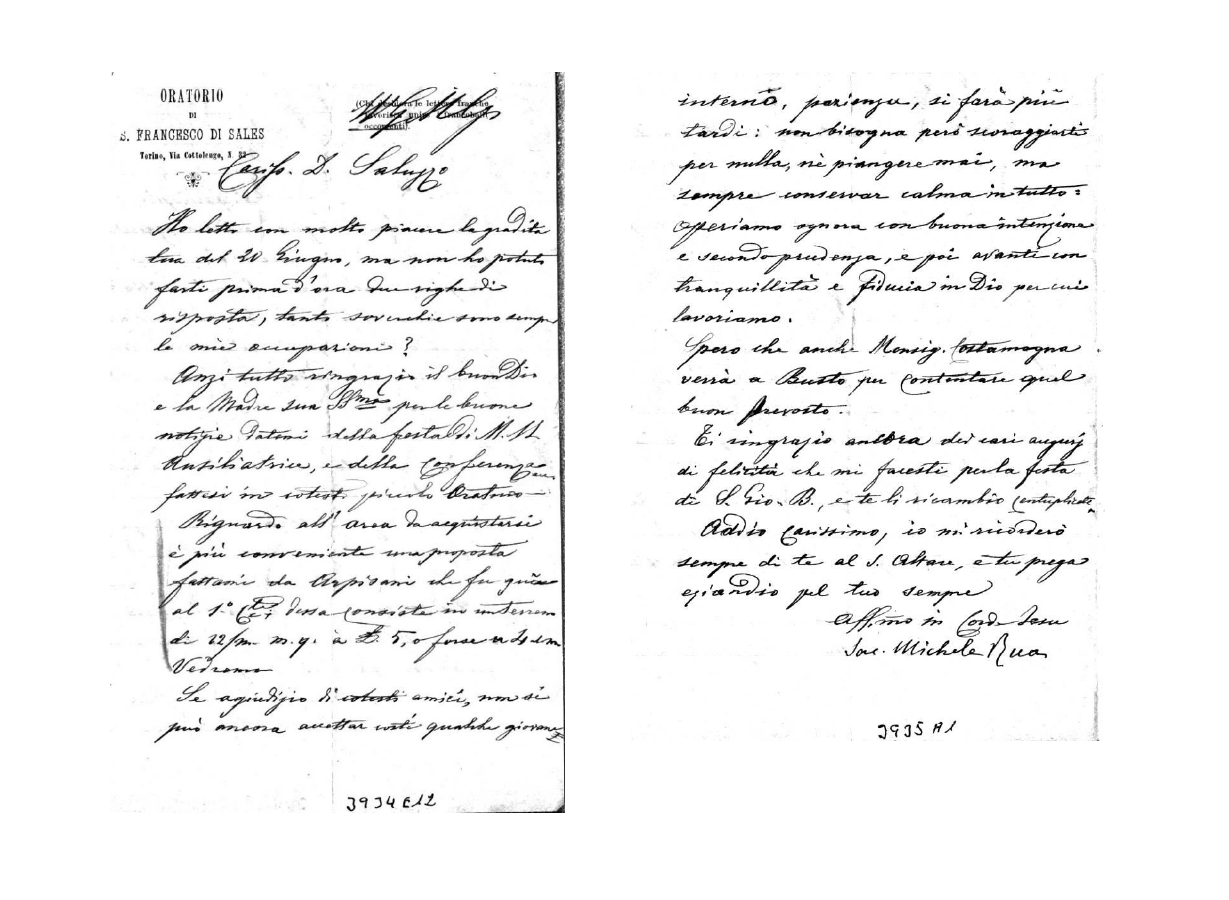 ORATORIO
DI
S. FRANCESCO DI SALES
Torino, Via Cottolengo, N. 32
(Chi desidera le lettere franche
favorisca unire francobolli
occorrenti).
Cariss. D. Saluzzo
Ho letto con molto piacere la gradita
tua del 20 Giugno, ma non ho potuto
farti prima d'ora due righe di
risposta, tanto soverchie sono sempre
le mie occupazioni?
Anzi tutto ringrazio il buon Dio
e la Madre sua SSma per le buone
notizie datemi della festa di M. SS.
Ausiliatrice, e della Conferenza
fattasi in cotesto piccolo Oratorio
Riguardo all' area da acquistarsi
è più conveniente una proposta
fattami da Arpisani che fu qui
al 1.° Corr. dessa consiste in un terreno
di 12/m m.q. a £. 5, o forse a 4 e m
Vedremo
Se a giudizio di cotesti amici, non si
può ancora accettar costì qualche giovane
3934 E12
interno, pazienza, si farà più
tardi: non bisogna però scoraggiarsi
per nulla, nè piangere mai, ma
sempre conservar calma in tutto:
Operiamo ognora con buona intenzione
e secondo prudenza, e poi avanti con
tranquillità e Fiducia in Dio per cui
lavoriamo.
Spero che anche Monsig. Costamagna
verrà a Busto per contentare quel
buon Prevosto.
Ti ringrazio ancora dei cari augurj
di felicità che mi facesti per la festa
di S. Gio. B., e te li ricambio centuplicati.
Addio Carissimo, io mi ricorderò
sempre di te al S. Altare, e tu prega
eziandio pel tuo sempre
Aff.mo in Corde Jesu
Sac. Michele Rua
3935 A1